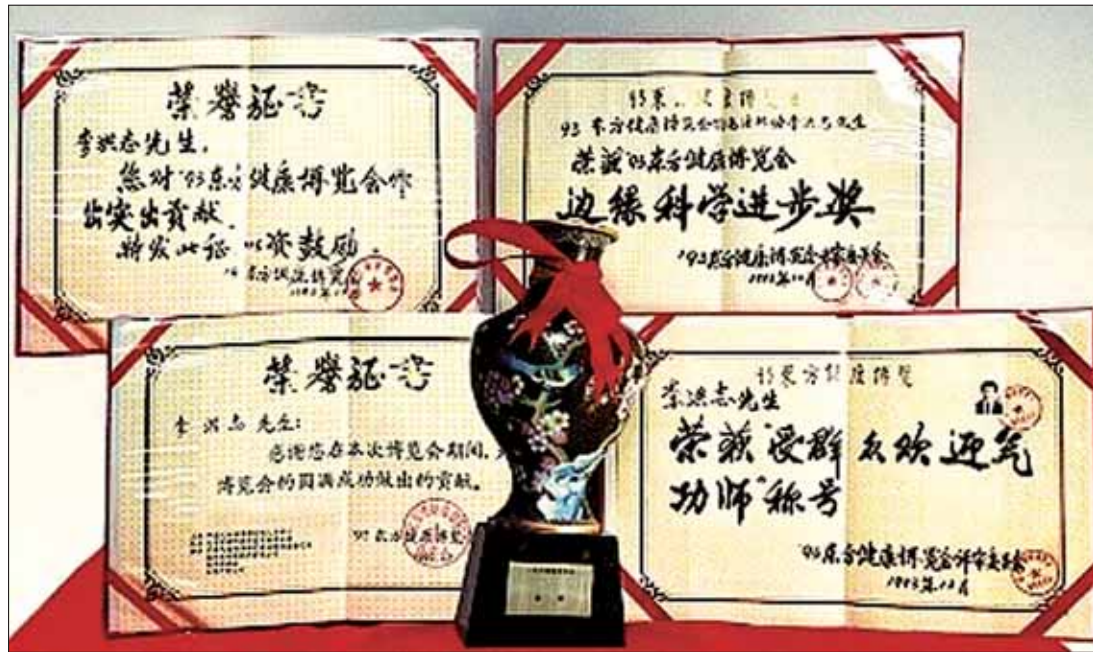 荣誉证书
李洪志先生，
您对'93东方健康博览会作
出突出贡献，
特发此证 以资鼓励。
1993年12月
荣获'93东方健康博览会
边缘科学进步奖
'93东方健康博览会评审委员会
1993年12月
荣誉证书
李洪志先生：
感谢您在本次博览会期间，
博览会的圆满成功做出的贡献。
'93东方健康博览
'93东方健康博览
李洪志先生
荣获“受群众欢迎气
功师”称号
'93东方健康博览会评审委员会
1993年12月